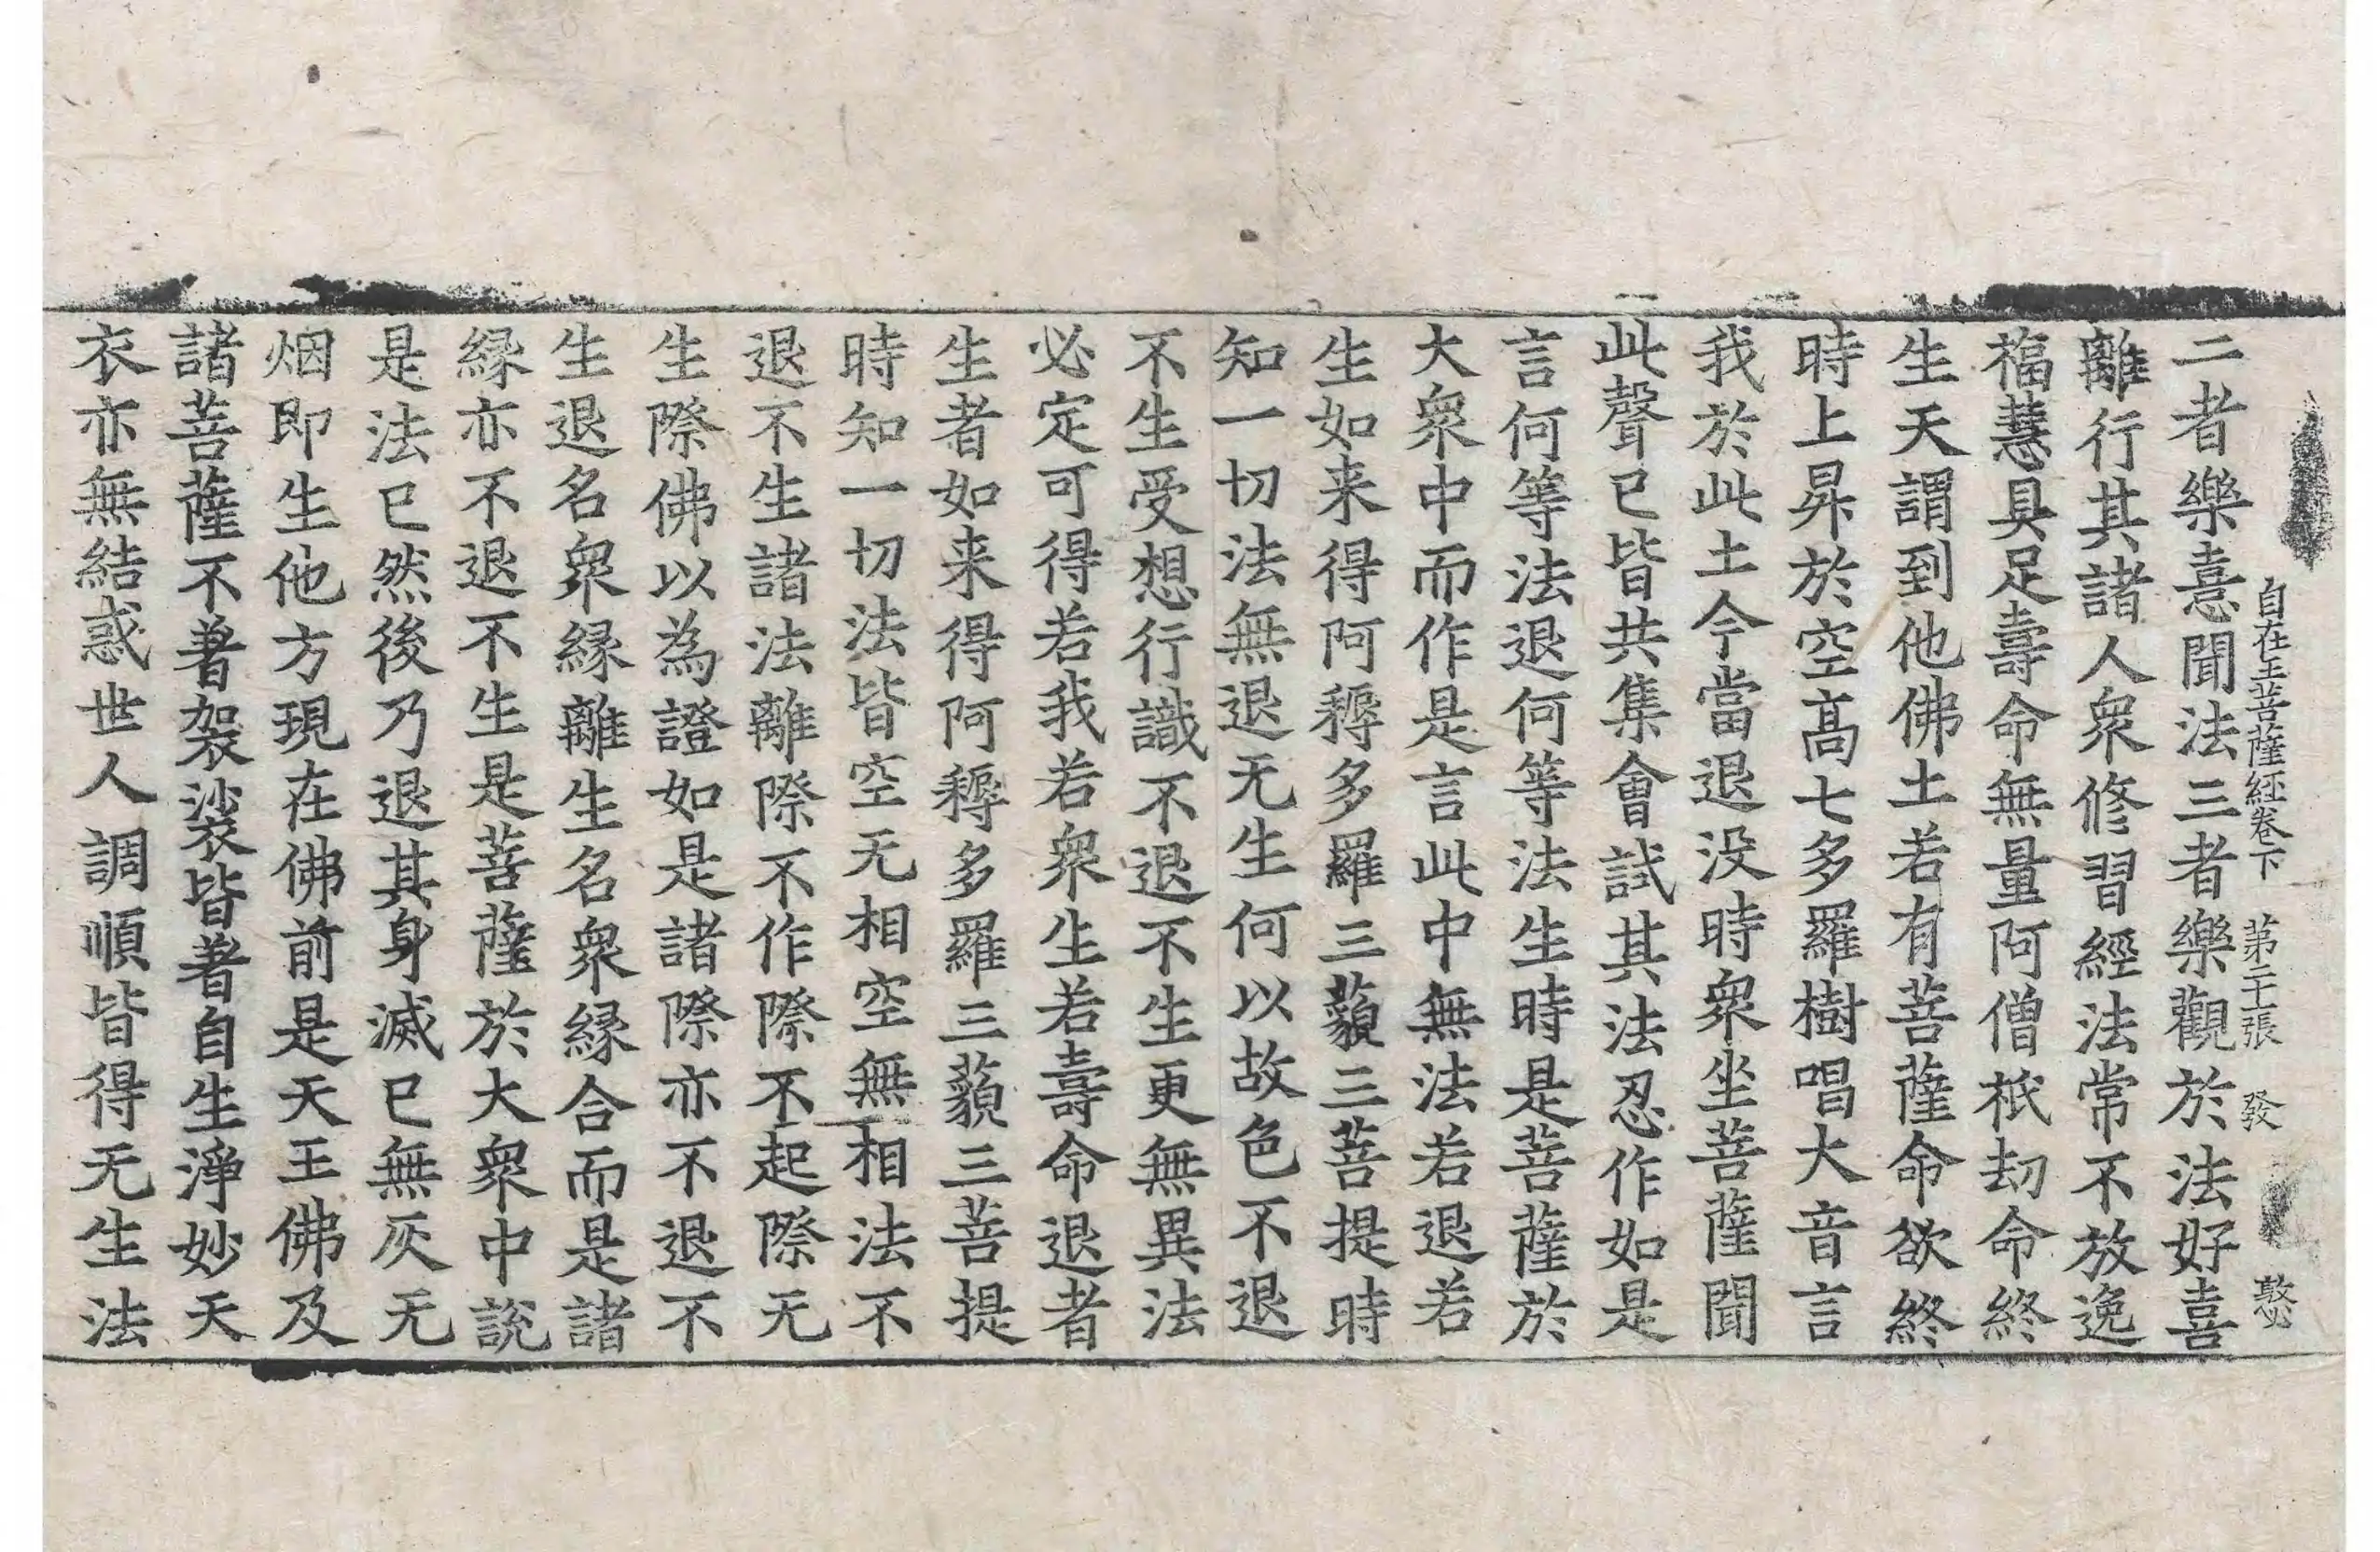 自在王菩薩經卷下　第二十張　發　慜
二者樂憙聞法三者樂觀於法好喜
離行其諸人衆修習經法常不放逸
福慧具足壽命無量阿僧祇劫命終
生天謂到他佛土若有菩薩命欲終
時上昇於空髙七多羅樹唱大音言
我於此土今當退没時衆坐菩薩聞
此聲已皆共集會試其法忍作如是
言何等法退何等法生時是菩薩於
大衆中而作是言此中無法若退若
生如来得阿耨多羅三藐三菩提時
知一切法無退无生何以故色不退
不生受想行識不退不生更無異法
必定可得若我若衆生若壽命退者
生者如来得阿耨多羅三藐三菩提
時知一切法皆空无相空無相法不
退不生諸法離際不作際不起際无
生際佛以為證如是諸際亦不退不
生退名衆縁離生名衆縁合而是諸
縁亦不退不生是菩薩於大衆中説
是法已然後乃退其身滅已無灰无
烟即生他方現在佛前是天王佛及
諸菩薩不著袈裟皆著自生淨妙天
衣亦無結惑世人調順皆得无生法